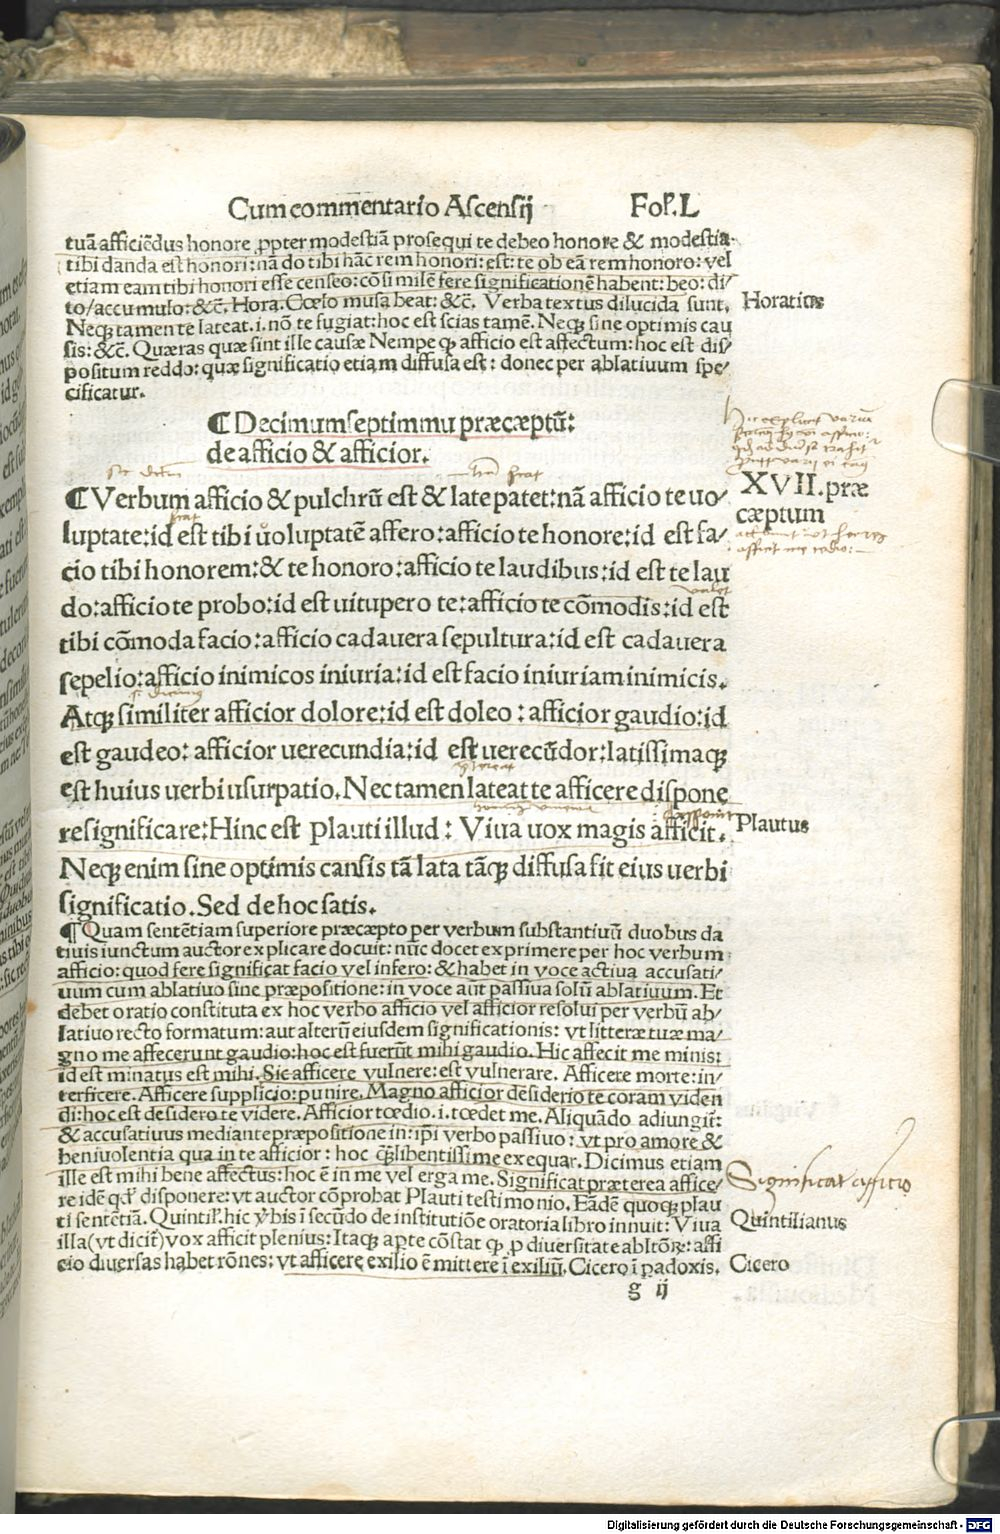 Cum commentario Ascensij Fol. L
tuã afficiẽdus honore ꝓpter modestiã prosequi te debeo honore & modestia
tibi danda est honori: nã do tibi hãc rem honori: est: te ob eã rem honoro: vel
etiam eam tibi honori esse censeo: cõsimilẽ fere significationẽ habent: beo: di/
to/accumulo: &c̃. Hora. Cœlo musa beat: &c̃. Verba textus dilucida sunt.
Horatius
Neqꝫ tamen te lateat .i. nõ te fugiat: hoc est scias tamẽ. Neqꝫ sine optimis cau
sis: &c̃. Quæras quæ sint ille causæ Nempe ꝙ afficio est affectum: hoc est dis/
positum reddo: quæ significatio etiam diffusa est: donec per ablatiuum spe/
cificatur.
¶ Decimumseptimmu præcæptũ:
de afficio & afficior.
¶ Verbum afficio & pulchrũ est & late patet: nã afficio te uo/
XVII. præ
cæptum
luptate: id est tibi uoluptatẽ affero: afficio te honore: id est fa/
cio tibi honorem: & te honoro: afficio te laudibus: id est te lau
do: afficio te probo: id est uitupero te: afficio te cõmodis: id est
tibi cõmoda facio: afficio cadauera sepultura: id est cadauera
sepelio: afficio inimicos iniuria: id est facio iniuriam inimicis.
Atqꝫ similiter afficior dolore: id est doleo: afficior gaudio: id
est gaudeo: afficior uerecundia: id est uerecũdor: latissimaqꝫ
est huius uerbi usurpatio. Nec tamen lateat te afficere dispone
re significare: Hinc est Plauti illud: Viua uox magis afficit.
Plautus
Neqꝫ enim sine optimis cansis tã lata tãqꝫ diffusa sit eius uerbi
significatio. Sed de hoc satis.
¶ Quam sentẽtiam superiore præcæpto per verbum substantiuũ duobus da
tiuis iunctum auctor explicare docuit: nũc docet exprimere per hoc verbum
afficio: quod fere significat facio vel infero: & habet in voce actiua accusati/
uum cum ablatiuo sine præpositione: in voce aũt passiua solũ ablatiuum. Et
debet oratio constituta ex hoc verbo afficio vel afficior resolui per verbũ ab/
latiuo recto formatum: aut alterũ eiusdem significationis: vt litteræ tuæ ma/
gno me affecerunt gaudio: hoc est fuerũt mihi gaudio. Hic affecit me minis:
id est minatus est mihi. Sic afficere vulnere: est vulnerare. Afficere morte: in/
terficere. Afficere supplicio: punire. Magno afficior desiderio te coram viden
di: hoc est desidero te videre. Afficior tœdio .i. tœdet me. Aliquãdo adiungit̃:
& accusatiuus mediante præpositione in: ip̃i verbo passiuo: vt pro amore &
beniuolentia qua in te afficior: hoc q̃libentissime exequar. Dicimus etiam
ille est mihi bene affectus: hoc ẽ in me vel erga me. Significat præterea affice/
Significat afficio
re idẽ qd̃ disponere: vt auctor cõprobat Plauti testimonio. Eãdẽ quoqꝫ plau
ti sentẽtiã. Quintil. hic ỹbis ĩ secũdo de institutiõe oratoria libro innuit: Viua
Quintilianus
illa (vt dicit̃) vox afficit plenius: Itaqꝫ aꝑte cõstat ꝙ ꝓ diuersitate abltõꝝ: affi
cio diuersas habet rõnes: vt afficere exilio ẽ mittere ĩ exiliũ. Cicero ĩ ꝑadoxis.
Cicero
g ij
Digitalisierung gefördert durch die Deutsche Forschungsgemeinschaft - DFG